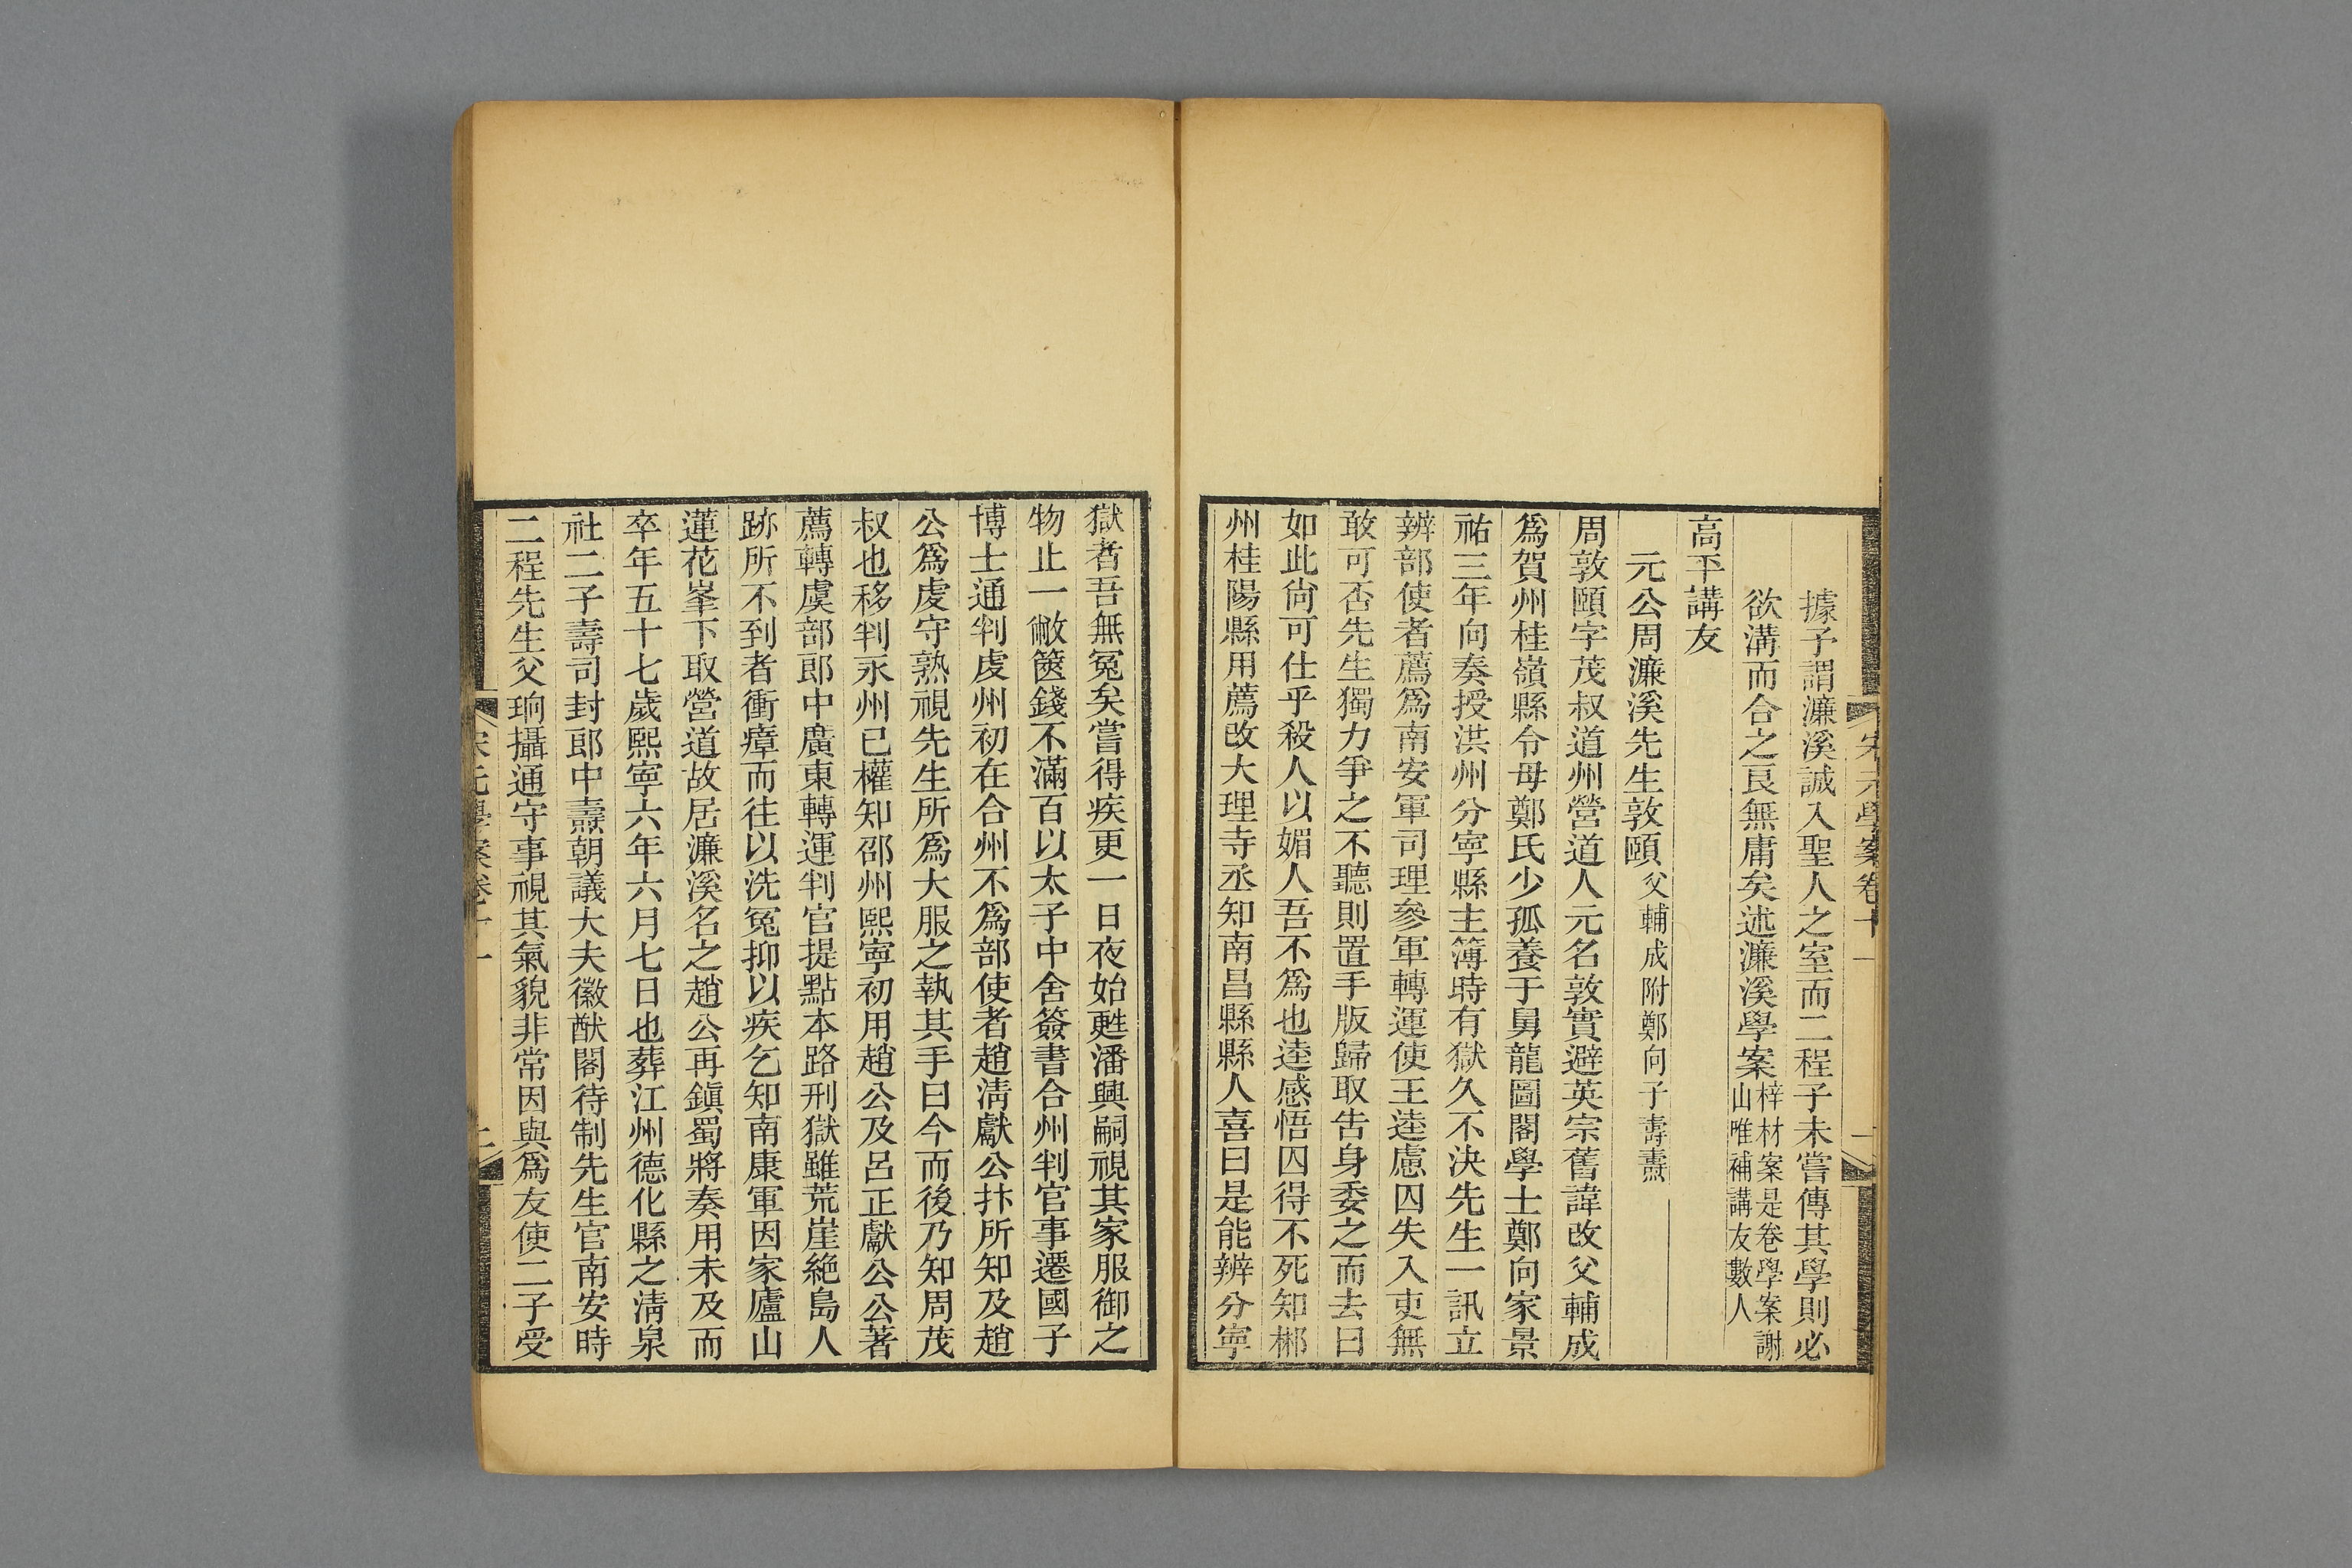 宋元學案卷十一
據子謂濂溪誠入聖人之室而二程子未嘗傳其學則必
欲溝而合之良無庸矣述濂溪學案梓材案是卷學案謝
山唯補講友數人
高平講友
元公周濂溪先生敦頤父輔成附鄭向子壽燾
周敦頤字茂叔道州營道人元名敦實避英宗舊諱改父輔成
爲賀州桂嶺縣令母鄭氏少孤養于舅龍圖閣學士鄭向家景
祐三年向奏授洪州分寧縣主簿時有獄久不決先生一訊立
辨部使者薦爲南安軍司理參軍轉運使王逵慮囚失入吏無
敢可否先生獨力爭之不聽則置手版歸取告身委之而去曰
如此尙可仕乎殺人以媚人吾不爲也逵感悟囚得不死知郴
州桂陽縣用薦改大理寺丞知南昌縣縣人喜曰是能辨分寧
獄者吾無冤矣嘗得疾更一日夜始甦潘興嗣視其家服御之
物止一敝篋錢不滿百以太子中舍簽書合州判官事遷國子
博士通判虔州初在合州不爲部使者趙淸獻公抃所知及趙
公爲虔守熟視先生所爲大服之執其手曰今而後乃知周茂
叔也移判永州已權知邵州熙寧初用趙公及呂正獻公公著
薦轉虞部郎中廣東轉運判官提點本路刑獄雖荒崖絶島人
跡所不到者衝瘴而往以洗冤抑以疾乞知南康軍因家廬山
蓮花峯下取營道故居濂溪名之趙公再鎭蜀將奏用未及而
卒年五十七歲熙寧六年六月七日也葬江州德化縣之淸泉
社二子壽司封郎中燾朝議大夫徽猷閣待制先生官南安時
二程先生父珦攝通守事視其氣貌非常因與爲友使二子受
宋元學案卷十一
二